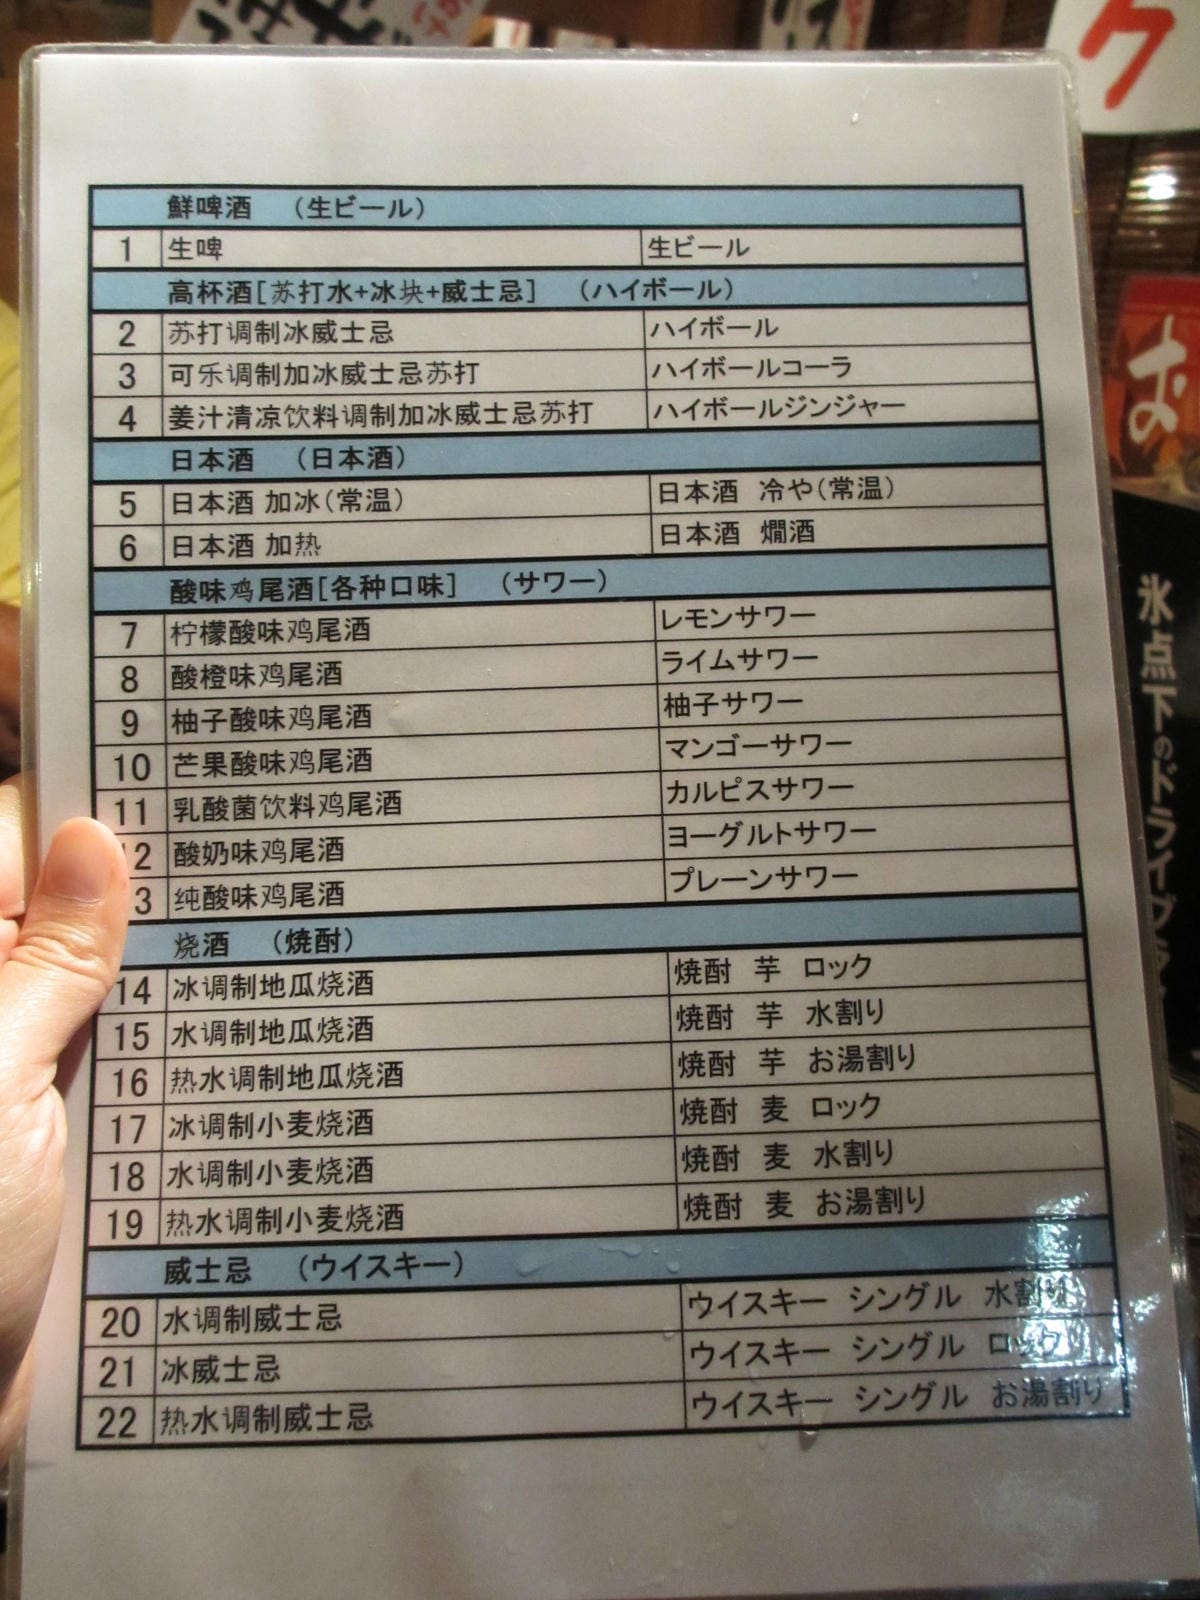 鮮啤酒 （生ビール）
1 生啤 生ビール
高杯酒[苏打水+冰块+威士忌] （ハイボール）
2 苏打调制冰威士忌 ハイボール
3 可乐调制加冰威士忌苏打 ハイボールコーラ
4 姜汁清凉饮料调制加冰威士忌苏打 ハイボールジンジャー
日本酒 （日本酒）
5 日本酒 加冰（常温） 日本酒 冷や（常温）
6 日本酒 加热 日本酒 燗酒
酸味鸡尾酒[各种口味] （サワー）
7 柠檬酸味鸡尾酒 レモンサワー
8 酸橙味鸡尾酒 ライムサワー
9 柚子酸味鸡尾酒 柚子サワー
10 芒果酸味鸡尾酒 マンゴーサワー
11 乳酸菌饮料鸡尾酒 カルピスサワー
12 酸奶味鸡尾酒 ヨーグルトサワー
3 纯酸味鸡尾酒 プレーンサワー
烧酒 （焼酎）
14 冰调制地瓜烧酒 焼酎 芋 ロック
15 水调制地瓜烧酒 焼酎 芋 水割り
16 热水调制地瓜烧酒 焼酎 芋 お湯割り
17 冰调制小麦烧酒 焼酎 麦 ロック
18 水调制小麦烧酒 焼酎 麦 水割り
19 热水调制小麦烧酒 焼酎 麦 お湯割り
威士忌 （ウイスキー）
20 水调制威士忌 ウイスキー シングル 水割り
21 冰威士忌 ウイスキー シングル ロック
22 热水调制威士忌 ウイスキー シングル お湯割り
ク
お
氷点下のドライブ